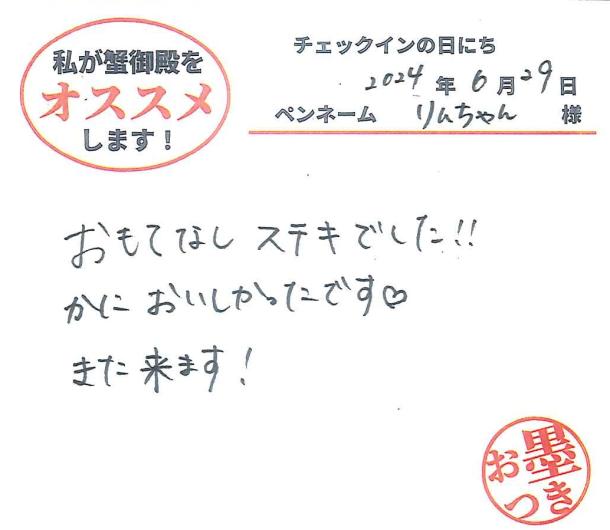 私が蟹御殿を
オススメ
します！
チェックインの日にち
2024年6月29日
ペンネーム りんちゃん 様
おもてなし ステキでした!!
かに おいしかったです♡
また来ます!
お墨
つき